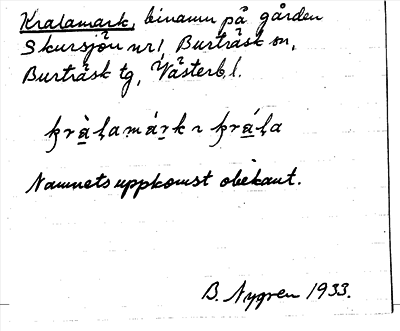 Kralamark, binamn på gården
Skursjön nr 1, Burträsk sn,
Burträsk tg, Västerb. l.
Namnets uppkomst obekant.
B. Nygren 1933.